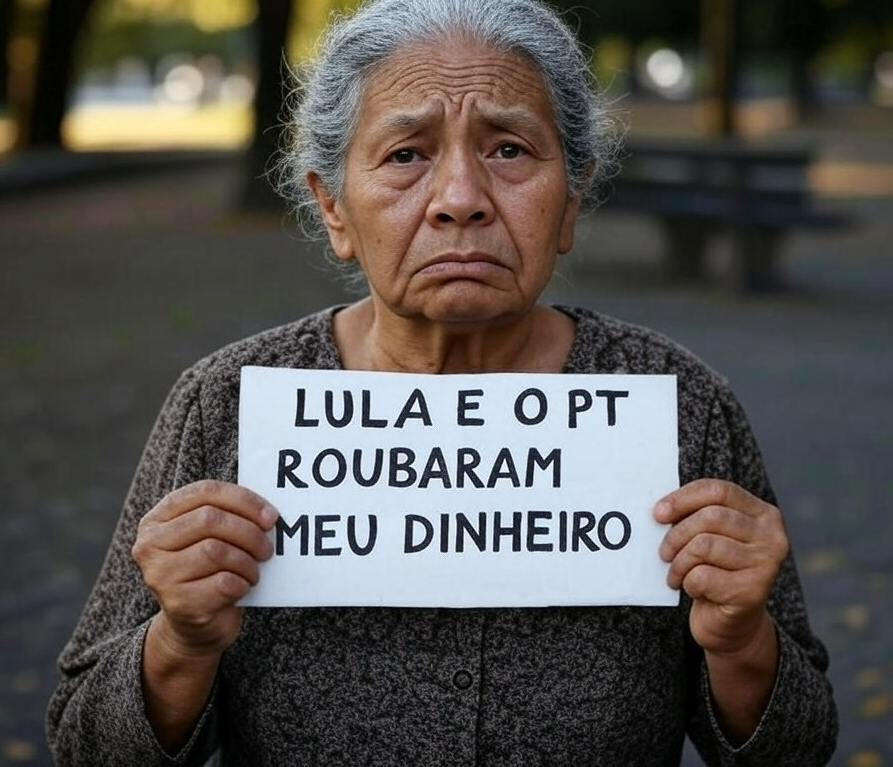 LULA E O PT
ROUBARAM
MEU DINHEIRO